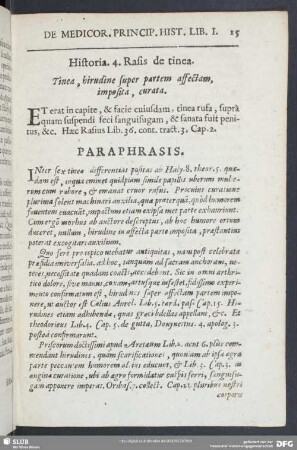 DE MEDICOR. PRINCIP. HIST. LIB. I. 15
Historia. 4. Rasis de tinea.
Tinea, hirudine super partem affectam,
imposita, curata.
ET erat in capite, & facie cuiusdam. tinea rufa, suprà
quam suspendi feci sanguisugam, & sanata fuit peni-
tus, &c. Hæc Rasius Lib. 36. cont. tract. 3. Cap. 2.
PARAPHRASIS.
INter sex tineæ differentias positas ab Haly. 8. theor. 5. quæ-
dam est, in qua eminet quidpiam simile papillis uberum mulie-
rum cum rubore, & emanat cruor rufus. Procuius curatione
plurima solent machinari auxilia, quæ præterquà, quòd humorem
fauentem euacuët, impactum etiam expulsa met parte exhauriunt.
Comergò morbus ab auctore descriptus, ab hoc humore ortum
duceret, nullum, hirudine in affecta parte imposita, præstantius
poterat excogitari auxilium.
Quo ferè prospicto vtebatur antiquitas, nam post celebrata
præsidia vniuersalia. ad hanc, tanquam ad sacram anchoram, ve-
teres, necessitate quadam coacti, accedebant. Sic in omni arthri-
tico dolore, siue manus, coxam, artusque infestet, fidissimo experi-
mento confirmatum est, hirudines super affectam partem impo-
nere, vt auctor est Celius Aurel. Lib. 5. tard. pas. Cap. 15. Hi-
rudines etiam adhibenda, quas græci bdellas appellant, &c. Et
theodorius Lib. 4. Cap. 5. de gutta, Donynetius. 4. apolog. 3.
posteà confirmarunt.
Priscorum doctissimi apud Aretæum Lib. 2. acut 6. plus com-
mendant hirudines, quàm scarificationes, quoniam ab ipsa ægra
parte peccantem humorem altius educunt, & Lib 3. Cap. 2. in
angina curatione, vbi ab agro formidatur culpis ferri, sanguisu-
gam apponere imperat. Oribas. 7. collect. Cap. 22 pluribus nostri
corporis